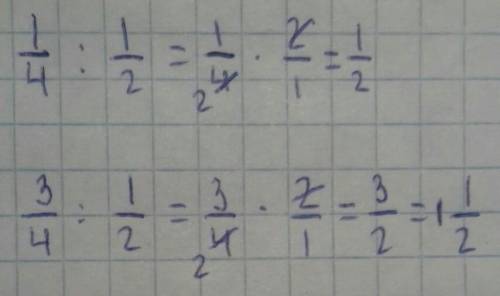 1/4 : 1/2 = 1/4 2 · 2/1 = 1/2
3/4 : 1/2 = 3/4 2 · 2/1 = 3/2 = 1 1/2